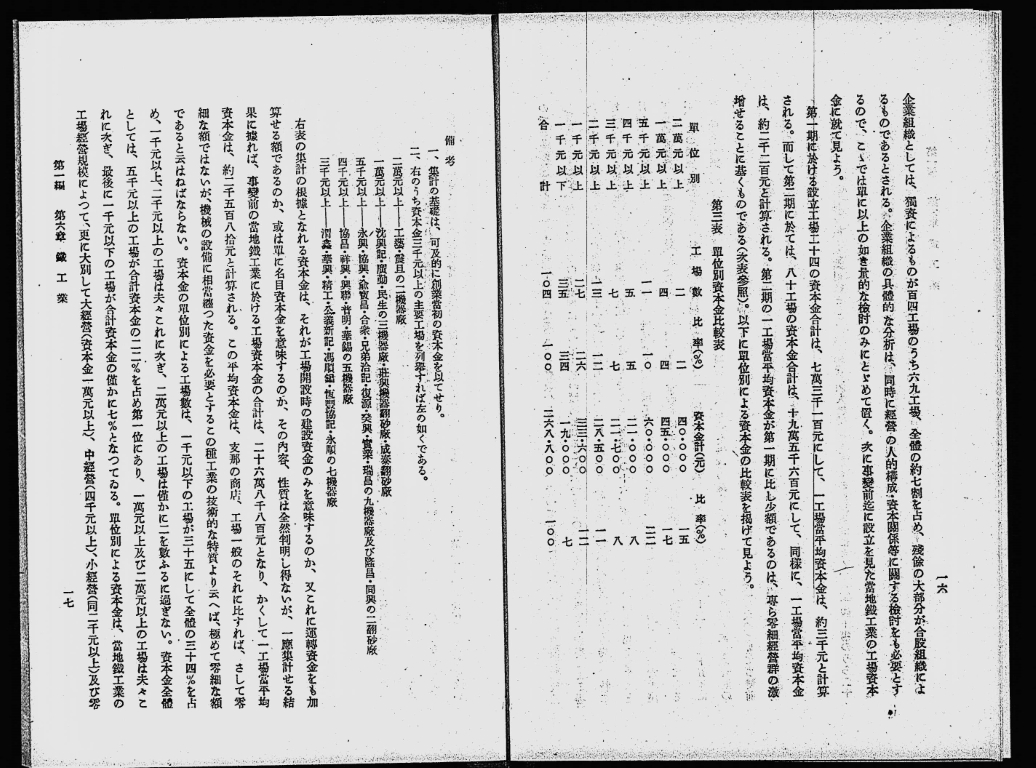 一六
企業組織としては、獨資によるものが百四工場のうち六九工場、全體の約七割を占め、殘餘の大部分が合股組織によ
るものであるとされる。企業組織の具體的な分析は、同時に經營の人的構成・資本關係等に關する檢討をも必要とす
るので、こゝでは單に以上の如き量的な檢討のみにとゞめて置く。次に事變前迄に設立を見た當地鐵工業の工場資本
金に就て見よう。
第一期に於ける設立工場二十四の資本金合計は、七萬三千一百元にして、一工場當平均資本金は、約三千元と計算
される。而して第二期に於ては、八十工場の資本金合計は、十九萬五千六百元にして、同樣に、一工場當平均資本金
は、約二千二百元と計算される。第二期の一工場當平均資本金が第一期に比し少額であるのは、專ら零細經營群の激
增せることに基くものである(次表參照)。以下に單位別による資本金の比較表を揭げて見よう。
第三表 單位別資本金比較表
單位別 工場數 比率(%) 資本金計(元) 比率(%)
二萬元以上 二 二 四〇・〇〇〇 一五
一萬元以上 四 四 四五・〇〇〇 一七
五千元以上 一一 一〇 六〇・〇〇〇 二二
四千元以上 五 五 二一・〇〇〇 八
三千元以上 七 七 二一・七〇〇 八
二千元以上 一三 一二 二八・五〇〇 一一
一千元以上 二七 二六 三三・六〇〇 一二
一千元以下 三五 三四 一九・〇〇〇 七
合計 一〇四 一〇〇 二六八・八〇〇 一〇〇
備考
一、集計の基礎は、可及的に創業當初の資本金を以てせり。
二、右のうち資本金三千元以上の主要工場を列擧すれば左の如くである。
二萬元以上――工藝・震旦の二機器廠
一萬元以上――沈興記・廣勤・民生の三機器廠・班興機器翻砂廠・成泰翻砂廠
五千元以上――永興・協興・兪寶昌・合衆・兄弟治記・復源・癸興・實業・瑞昌の九機器廠及び鑑昌・同興の二翻砂廠
四千元以上――協昌・祥興・興聯・普明・華錫の五機器廠
三千元以上――渭鑫・泰興・精工・公義新記・馮順錩・恆豐協記・永順の七機器廠
右表の集計の根據となれる資本金は、それが工場開設時の建設資金のみを意味するのか、又これに運轉資金をも加
算せる額であるのか、或は單に名目資本金を意味するのか、その內容、性質は全然判明し得ないが、一應集計せる結
果に據れば、事變前の當地鐵工業に於ける工場資本金の合計は、二十六萬八千八百元となり、かくして一工場當平均
資本金は、約二千五百八拾元と計算される。この平均資本金は、支那の商店、工場一般のそれに比すれば、さして零
細な額ではないが、機械の設備に相當纏つた資金を必要とするこの種工業の技術的な特質より云へば、極めて零細な額
であると云はねばならない。資本金の單位別による工場數は、一千元以下の工場が三十五にして全體の三十四%を占
め、一千元以上、二千元以上の工場は夫々これに次ぎ、二萬元以上の工場は僅かに二を數ふるに過ぎない。資本金全體
としては、五千元以上の工場が合計資本金の二二%を占め第一位にあり、一萬元以上及び二萬元以上の工場は夫々こ
れに次ぎ、最後に一千元以下の工場が合計資本金の僅かに七%となつてゐる。單位別による資本金は、當地鐵工業の
工場經營規模によつて、更に大別して大經營(資本金一萬元以上)、中經營(四千元以上)、小經營(同二千元以上)及び零
第一編 第六章 鐵工業
一七